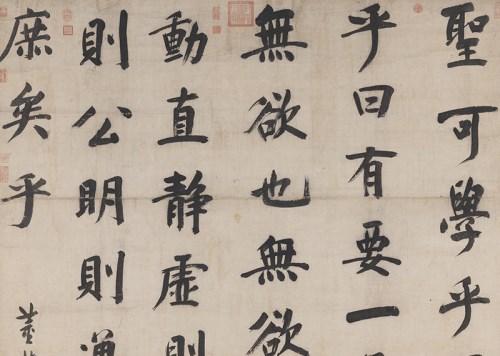 聖可學乎
乎曰有要一
無欲也無欲
動直靜虛則
則公明則
庶矣乎
董